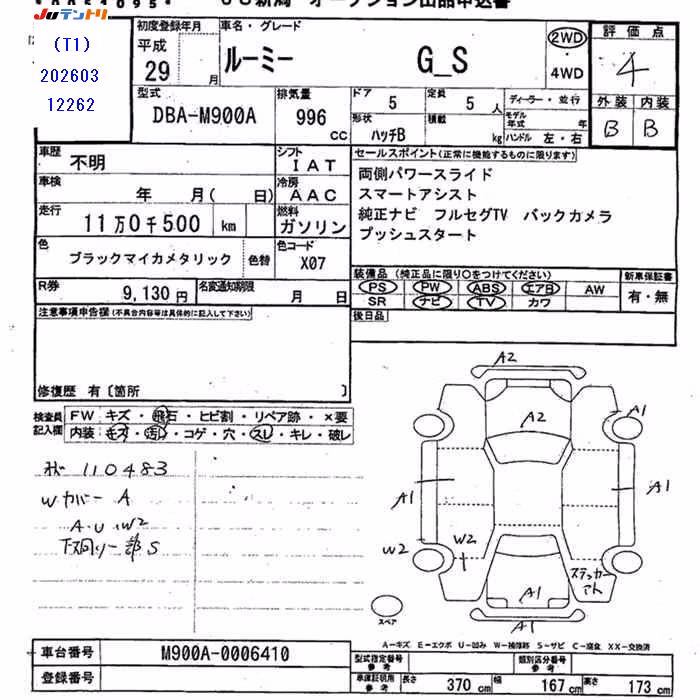 JUテントリ
(T1)
202603
12262
初度登録年月
平成
29 月
車名・グレード
ルーミー G_S
2WD
・
4WD
評価点
4
外装 内装
B B
型式
DBA-M900A
排気量
996
CC
ドア
5
定員
5 人
形状
ハッチB
積載
kg
ディーラー・並行
モデル年式 年
ハンドル 左・右
車歴
不明
シフト
IAT
車検
年 月( 日)
冷房
AAC
走行
11万0千500 km
燃料
ガソリン
色
ブラックマイカメタリック
色替
色コード
X07
R券
9,130円
名変通知期限
月 日
セールスポイント(正常に機能するものに限ります)
両側パワースライド
スマートアシスト
純正ナビ フルセグTV バックカメラ
プッシュスタート
装備品(純正品に限り○をつけてください)
PS PW ABS エアB AW
SR ナビ TV カワ
新車保証書
有・無
後日品
注意事項申告欄(不具合内容等は具体的に記入して下さい)
修復歴 有〔箇所 〕
検査員
記入欄
FW キズ・飛石・ヒビ割・リペア跡・×要
内装 キズ・汚れ・コゲ・穴・スレ・キレ・破レ
110483
Wカバー A
A・U・W2
下回り一部S
A2
A2
A1
A1
A1
W2
W2
ステッカー
アト
A1
A1
スペア
A-キズ E-エクボ U-凹み W-補修跡 S-サビ C-腐食 XX-交換済
車台番号
M900A-0006410
登録番号
型式指定番号
参考
類別区分番号
参考
車庫証明用
参考
長さ 370 cm
幅 167 cm
高さ 173 cm